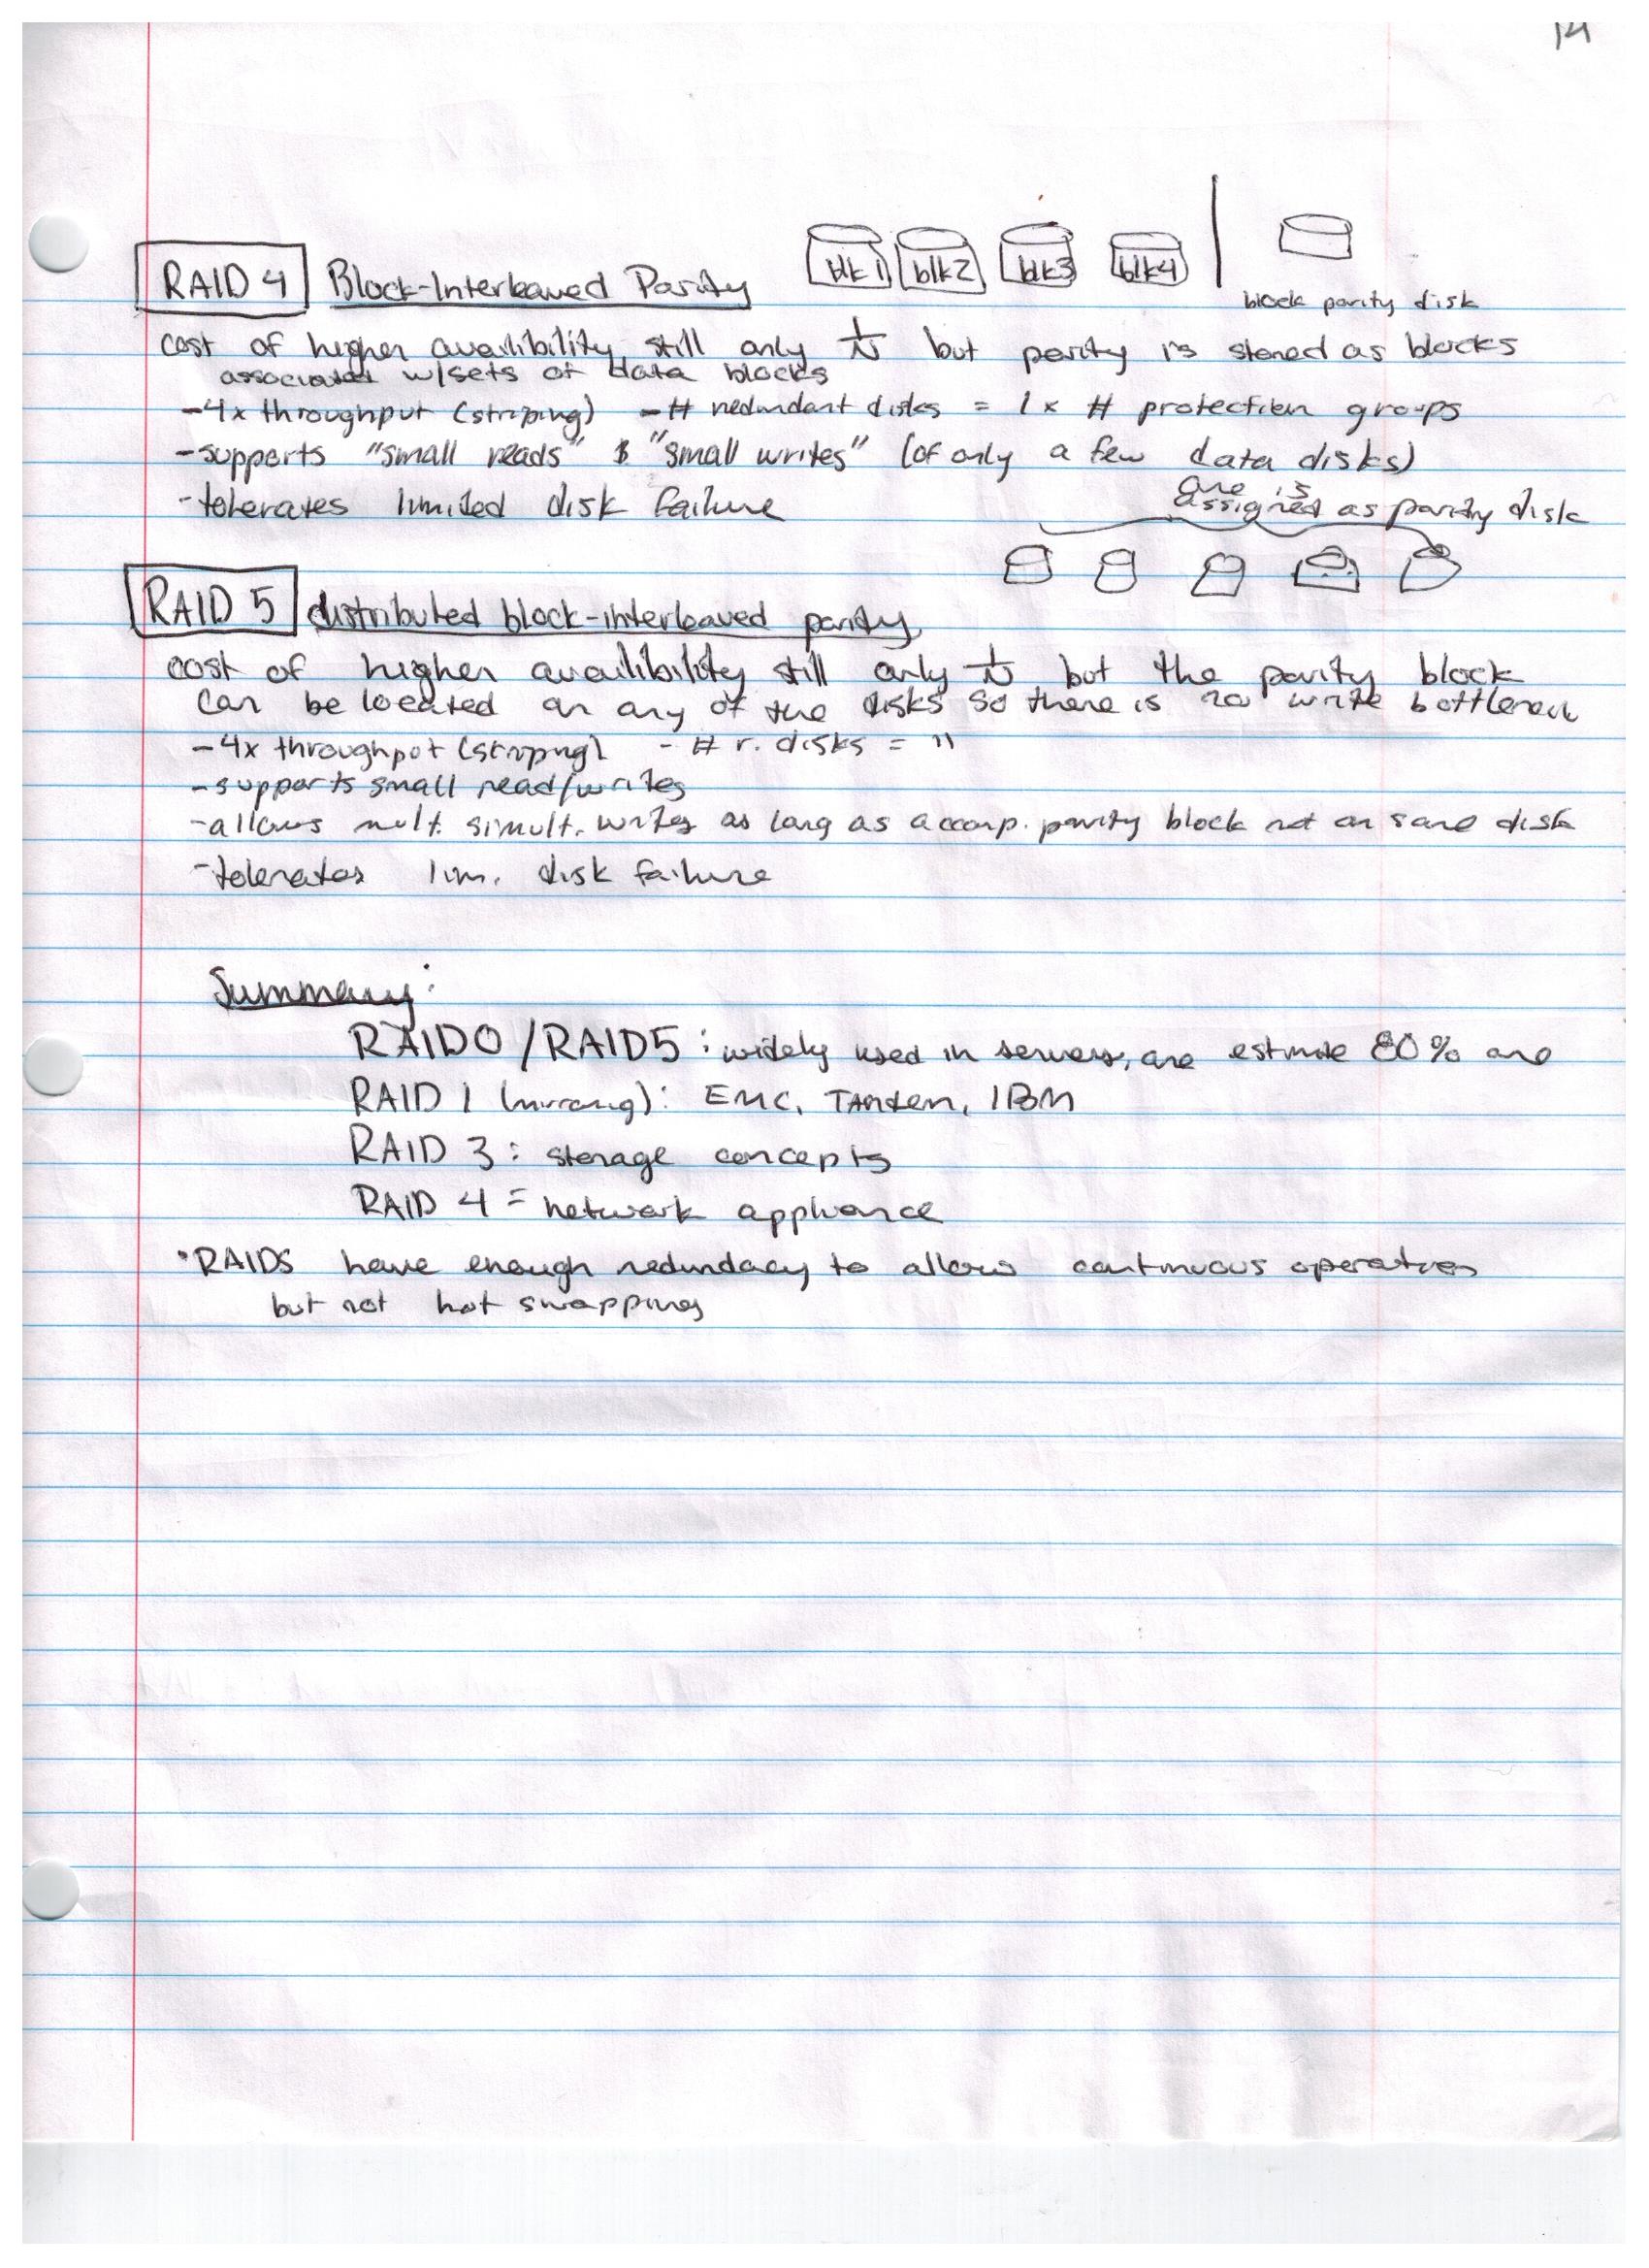 14
blk1 blk2 blk3 blk4
RAID 4 Block-Interleaved Parity
block parity disk
cost of higher availibility still only 1/N but parity is stored as blocks
associated w/sets of data blocks
-4x throughput (striping) -# redundant disks = 1x # protection groups
-supports "small reads" & "small writes" (of only a few data disks)
-tolerates limited disk failure
one is
assigned as parity disk
RAID 5 distributed block-interleaved parity
cost of higher availibility still only 1/N but the parity block
can be located on any of the disks so there is no write bottleneck
-4x throughput (striping) - # r. disks = "
-supports small read/writes
-allows mult. simult. writes as long as accomp. parity block not on same disk
-tolerates lim. disk failure
Summary:
RAID0/RAID5: widely used in servers, one estimate 80% are
RAID 1 (mirroring): EMC, TANdem, IBM
RAID 3: storage concepts
RAID 4 = network appliance
•RAIDS have enough redundacy to allow continuous operation
but not hot swapping